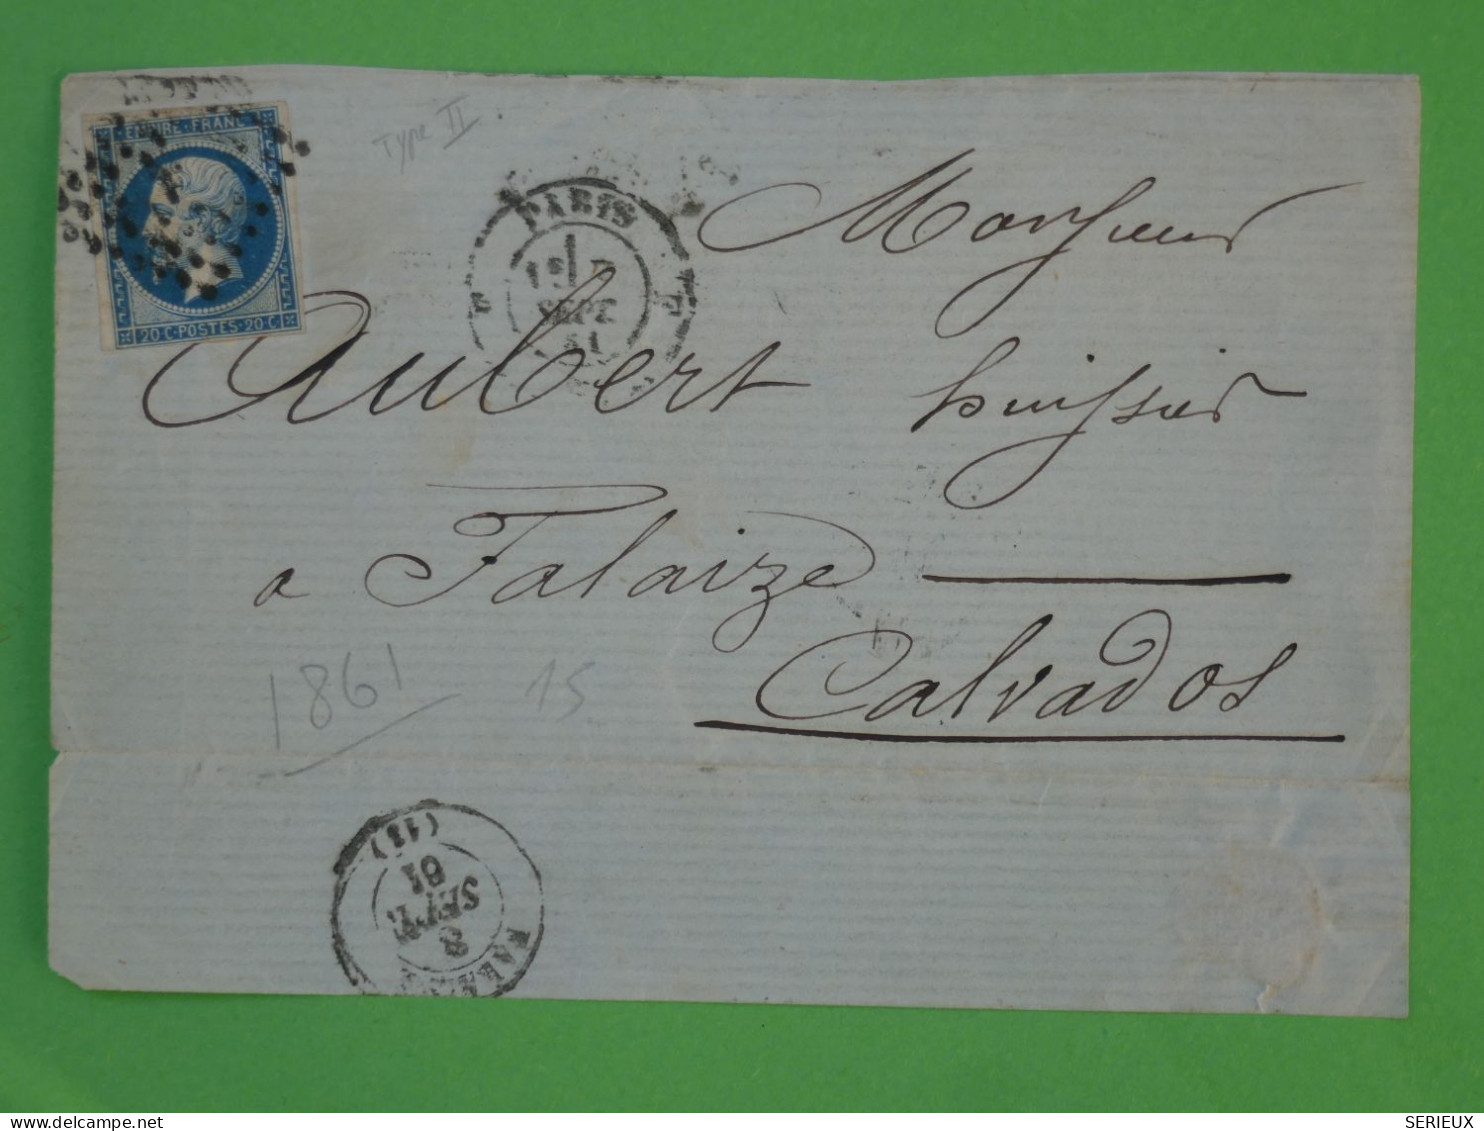 EMPIRE · FRANC
20 C · POSTES · 20 C
Type II
PARIS
SEPT
61
Monsieur
Aubert huissier
a Falaize
Calvados
1861
15
(13)
61
SEPT
8
SERIEUX